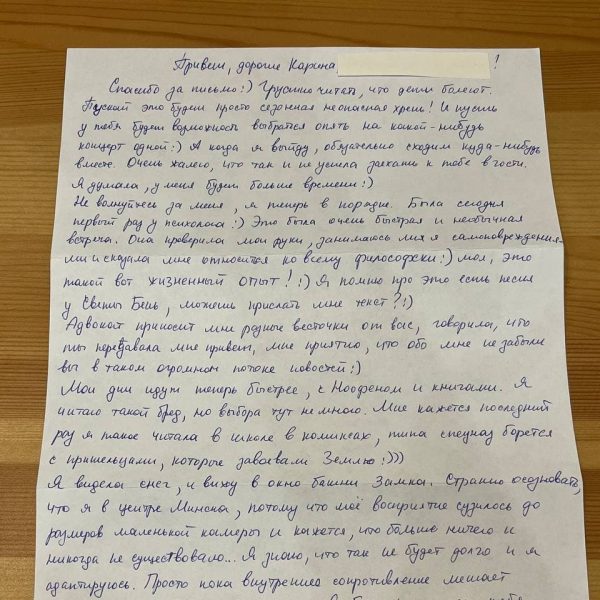 Привет, дорогие Карина !
Спасибо за письмо :) Грустно читать, что дети болеют.
Пускай это будет просто сезонная неопасная хрень! И пусть
у тебя будет возможность выбраться опять на какой-нибудь
концерт одной :) А когда я выйду, обязательно сходим куда-нибудь
вместе. Очень жалею, что так и не успела заехать к тебе в гости.
Я думала, у меня будет больше времени :)
Не волнуйтесь за меня, я теперь в порядке. Была сегодня
первый раз у психолога :) Это была очень быстрая и необычная
встреча. Она проверила мои руки, занималась ли я самоповреждения-
ми и сказала мне относится ко всему философски :) мол, это
такой вот жизненный опыт! :) Я помню про это есть песня
у Светы Бень, можешь прислать мне текст? :)
Адвокат приносит мне разные весточки от вас, говорила, что
ты передавала мне привет, мне приятно, что обо мне не забыли
вы в таком огромном потоке новостей :)
Мои дни идут теперь быстрее, с Ноофеном и книгами. Я
читаю такой бред, но выбора тут не много. Мне кажется последний
раз я такое читала в школе в комиксах, типа спецназ борется
с пришельцами, которые завоевали Землю :)))
Я видела снег, и вижу в окно башни Замка. Странно осозновать,
что я в центре Минска, потому что моё восприятие сузилось до
размеров маленькой камеры и кажется, что больше ничего и
никогда не существовало... Я знаю, что так не будет долго и я
адаптируюсь. Просто пока внутреннее сопротивление мешает